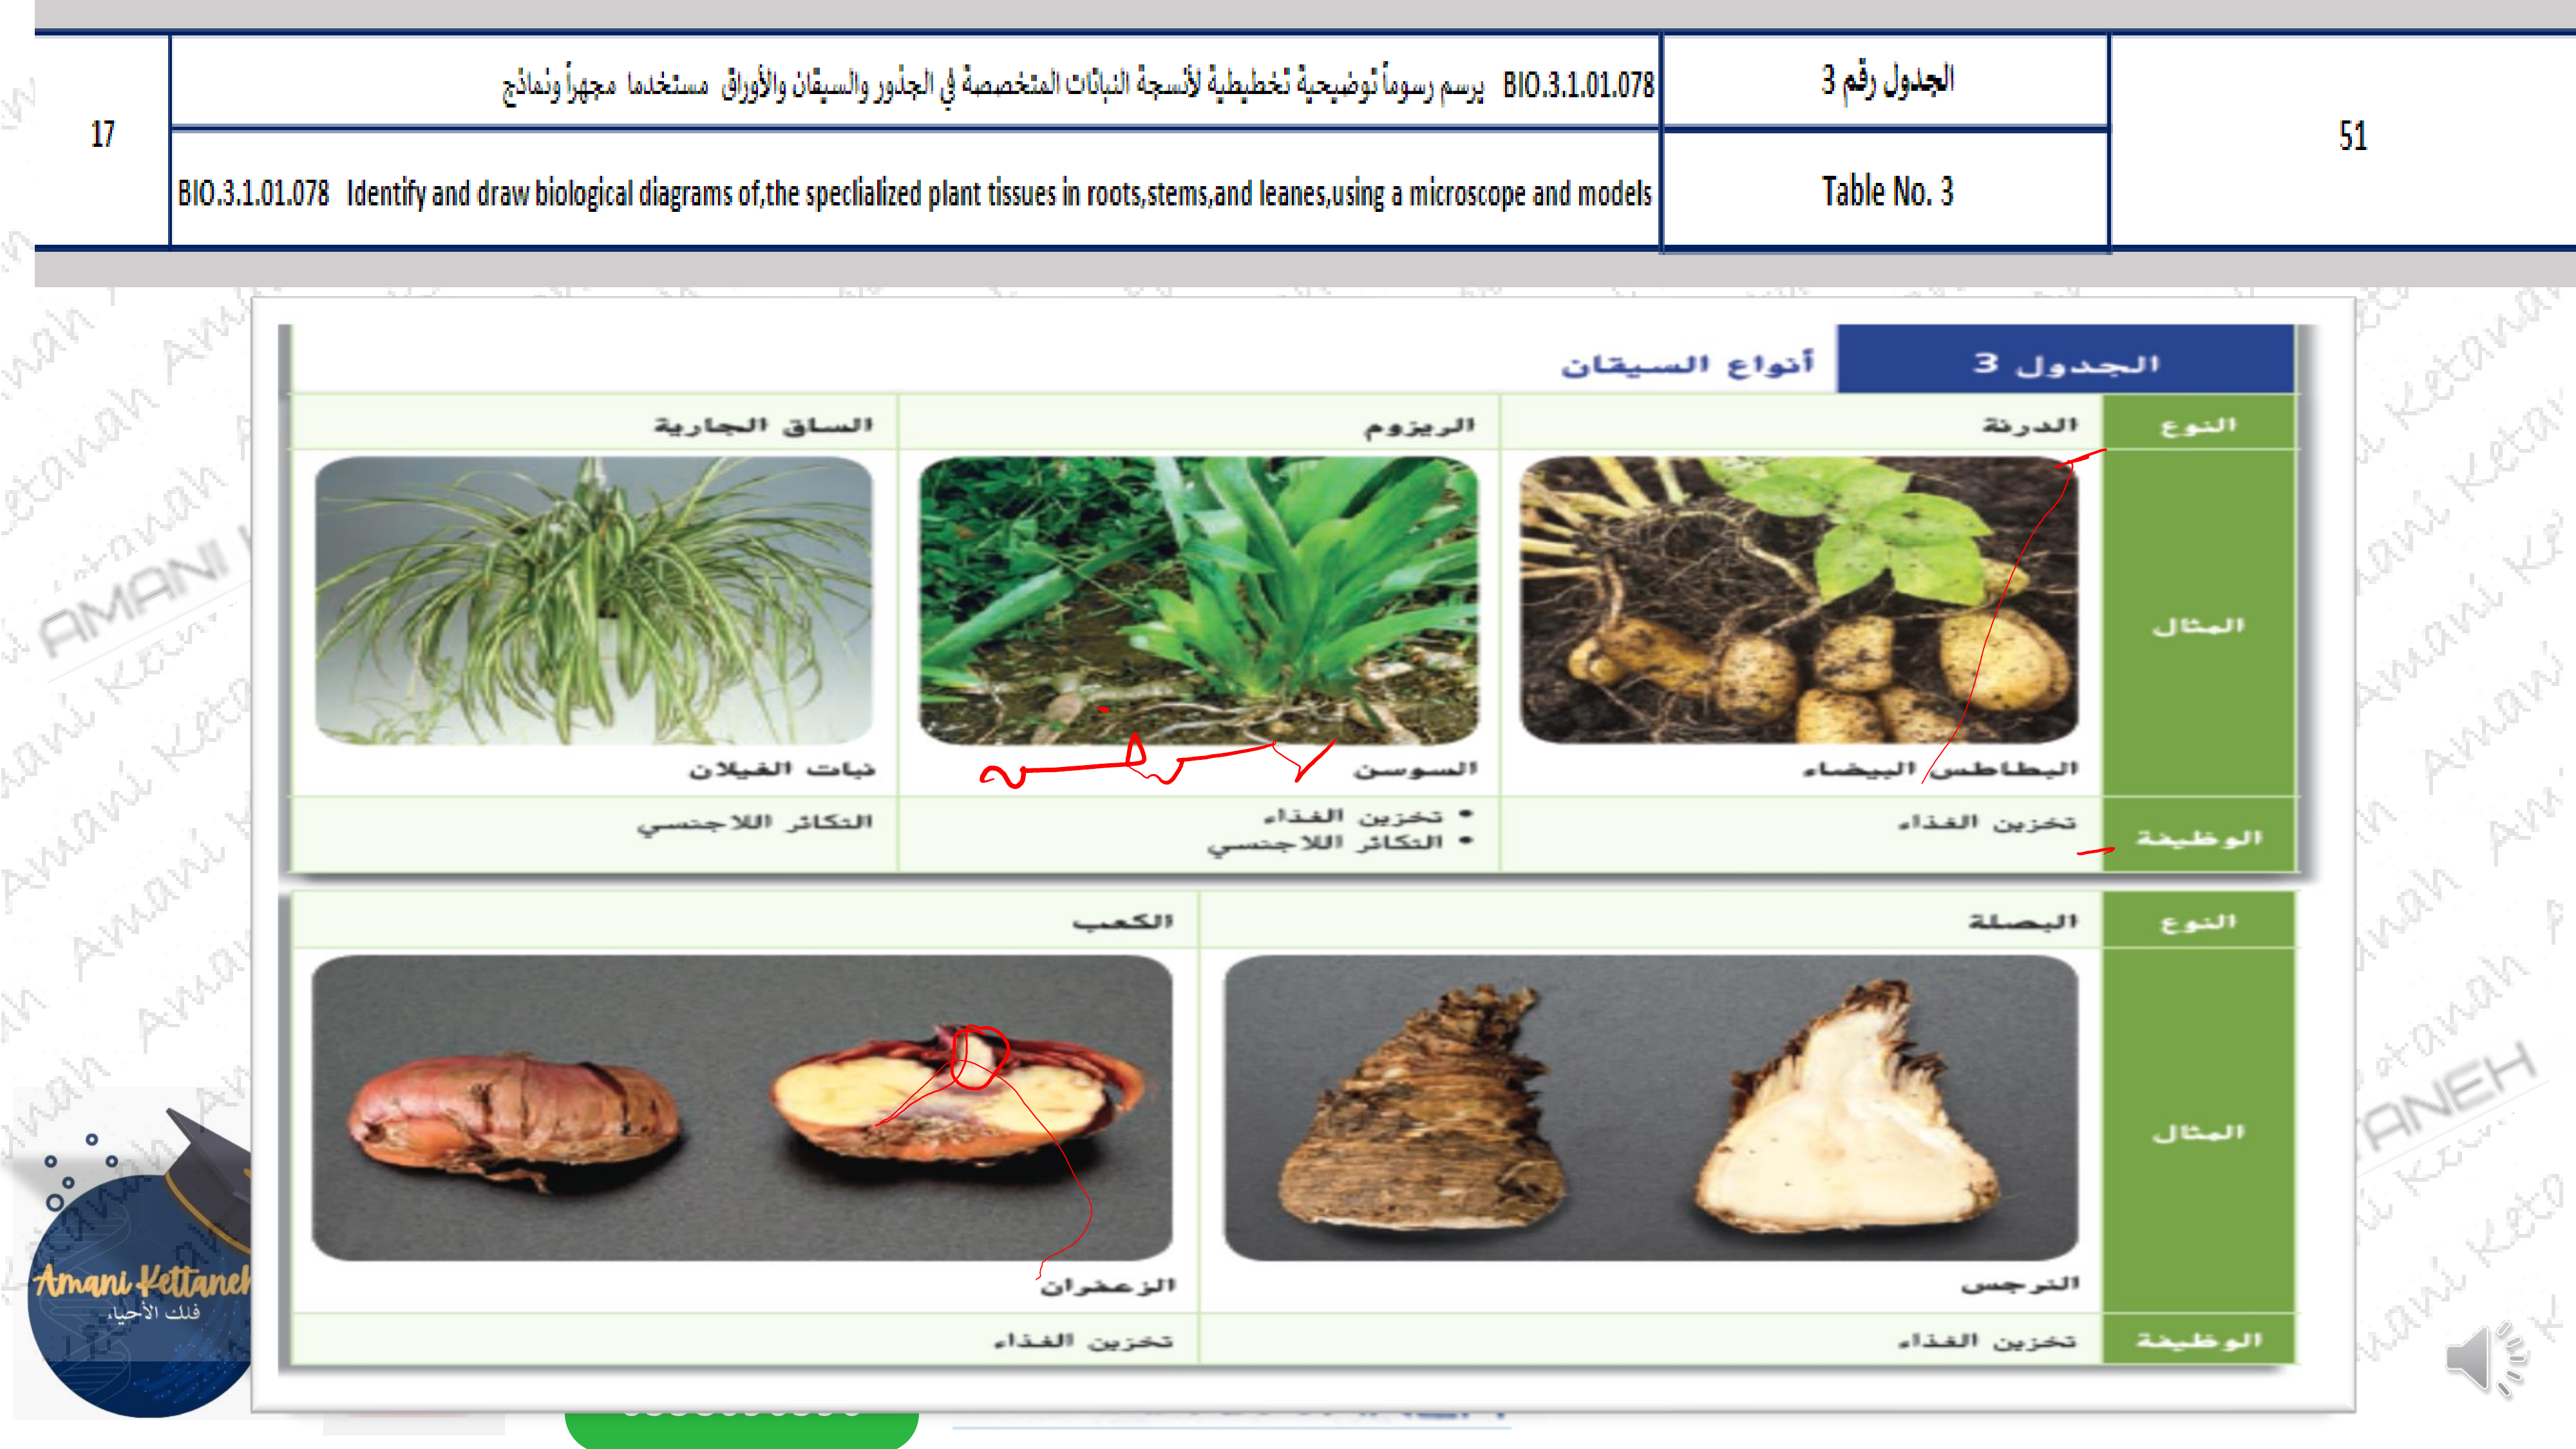 51
الجدول رقم 3
BIO.3.1.01.078 يرسم رسوماً توضيحية تخطيطية لأنسجة النباتات المتخصصة في الجذور والسيقان والأوراق مستخدما مجهراً ونماذج
17
Table No. 3
BIO.3.1.01.078 Identify and draw biological diagrams of,the speclialized plant tissues in roots,stems,and leanes,using a microscope and models
الجدول 3 أنواع السيقان
النوع الدرنة الريزوم الساق الجارية
المثال
البطاطس البيضاء السوسن نبات الغيلان
الوظيفة تخزين الغذاء • تخزين الغذاء التكاثر اللاجنسي
• التكاثر اللاجنسي
النوع البصلة الكعب
المثال
النرجس الزعفران
الوظيفة تخزين الغذاء تخزين الغذاء
Amani Kettaneh
فلك الأحياء